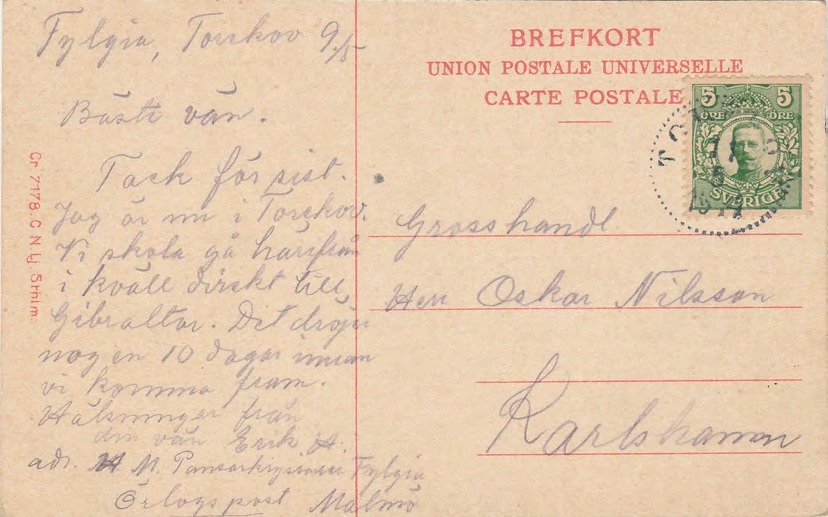 Fylgia, Torekov 9/5
Bäste vän.
Tack för sist.
Jag är nu i Torekov.
Vi skola gå härifrån
i kväll direkt till
Gibraltar. Det dröjer
nog en 10 dagar innan
vi komma fram.
Hälsningar från
din vän Erik A.
adr. H. M. Pansarkryssaren Fylgia
Örlogspost Malmö
Cr 7178. C. N:s Lj. Sthlm.
BREFKORT
UNION POSTALE UNIVERSELLE
CARTE POSTALE
5 5
ÖRE ÖRE
SVERIGE
Grosshandl
Herr Oskar Nilsson
Karlshamn